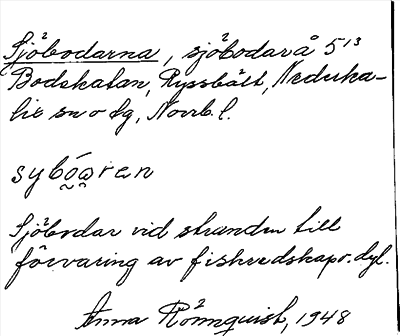 Sjöbodarna, sjöbodar å 5¹³
Bodskatan, Ryssbält, Nederka-
lix sn o tg, Norrb. l.
sybóarɛn
Sjöbodar vid stranden till
förvaring av fiskredskap o. dyl.
Anna Rönnquist, 1948